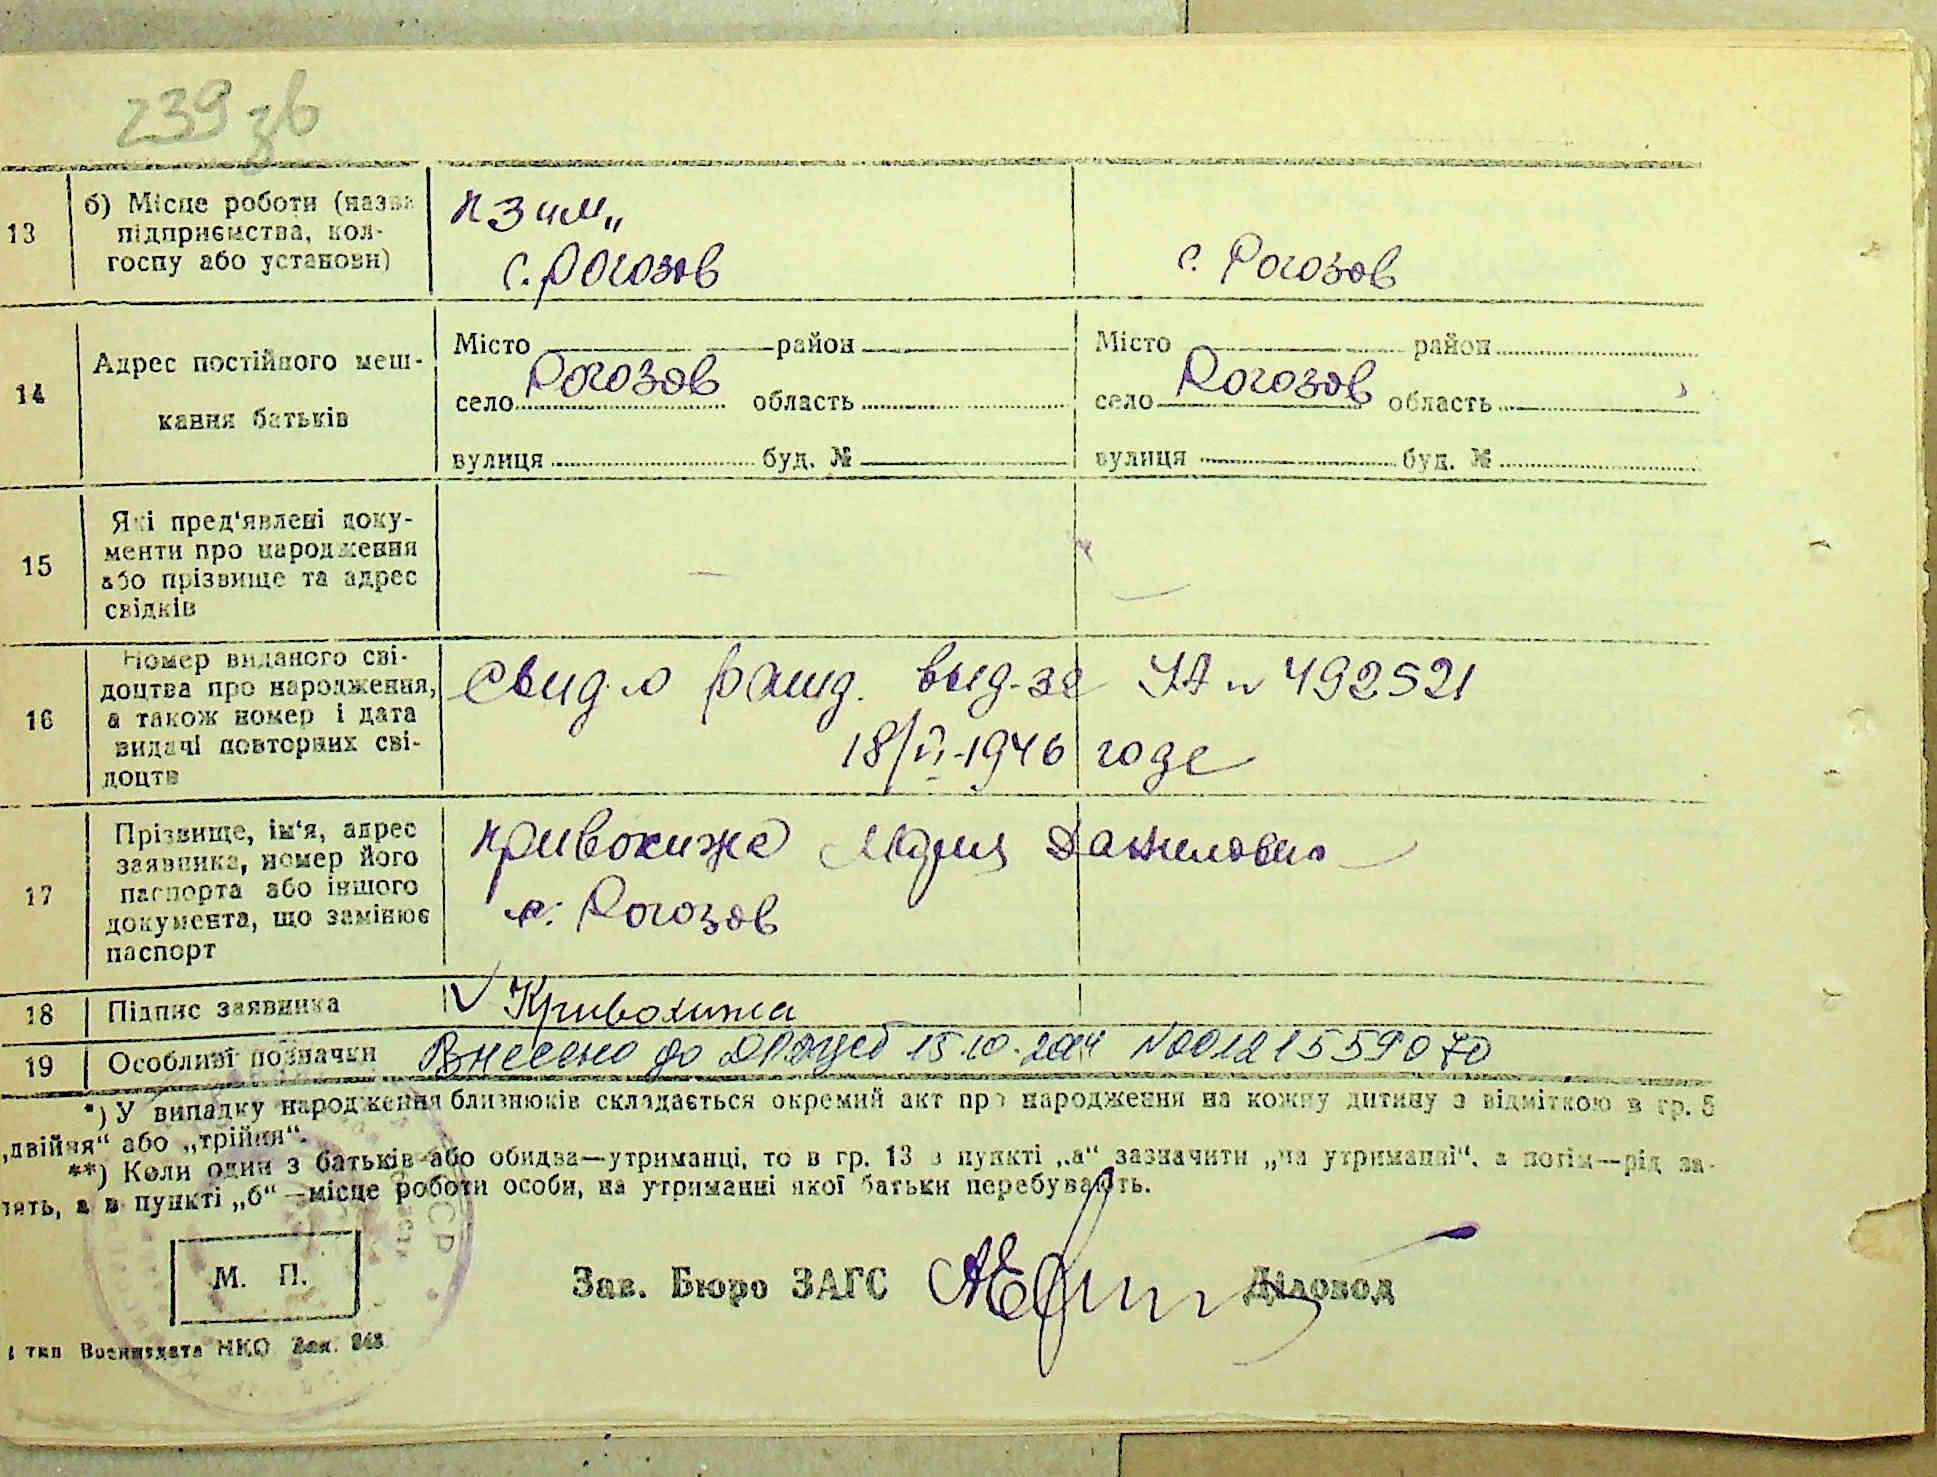 239 зв
13
б) Місце роботи (назва
підприємства, кол-
госпу або установи)
с. Рогозов
с. Рогозов
14
Адрес постійного меш-
кання батьків
Місто район
село Рогозов область
вулиця буд. №
Місто район
село Рогозов область
вулиця буд. №
15
Які пред'явлені доку-
менти про народження
або прізвище та адрес
свідків
16
Номер виданого сві-
доцтва про народження,
а також номер і дата
видачі повторних сві-
доцтв
Свид. о рожд. выд. за № 492521
18/VI-1946 годе
17
Прізвище, ім'я, адрес
заявника, номер його
паспорта або іншого
документа, що замінює
паспорт
Кривохижа Мария Даниловна
с. Рогозов
18
Підпис заявника
Кривохижа
19
Особливі позначки
Внесено до ДРАЦС 15.10. №00121559070
*) У випадку народження близнюків складається окремий акт про народження на кожну дитину з відміткою в гр. 5
„двійня“ або „трійня“.
**) Коли один з батьків або обидва—утриманці, то в гр. 13 в пункті „а“ зазначити „на утриманні“, а потім—рід за-
нять, а в пункті „б“—місце роботи особи, на утриманні якої батьки перебувають.
М. П.
Зав. Бюро ЗАГС
Діловод
тип Воениздата НКО Зак.